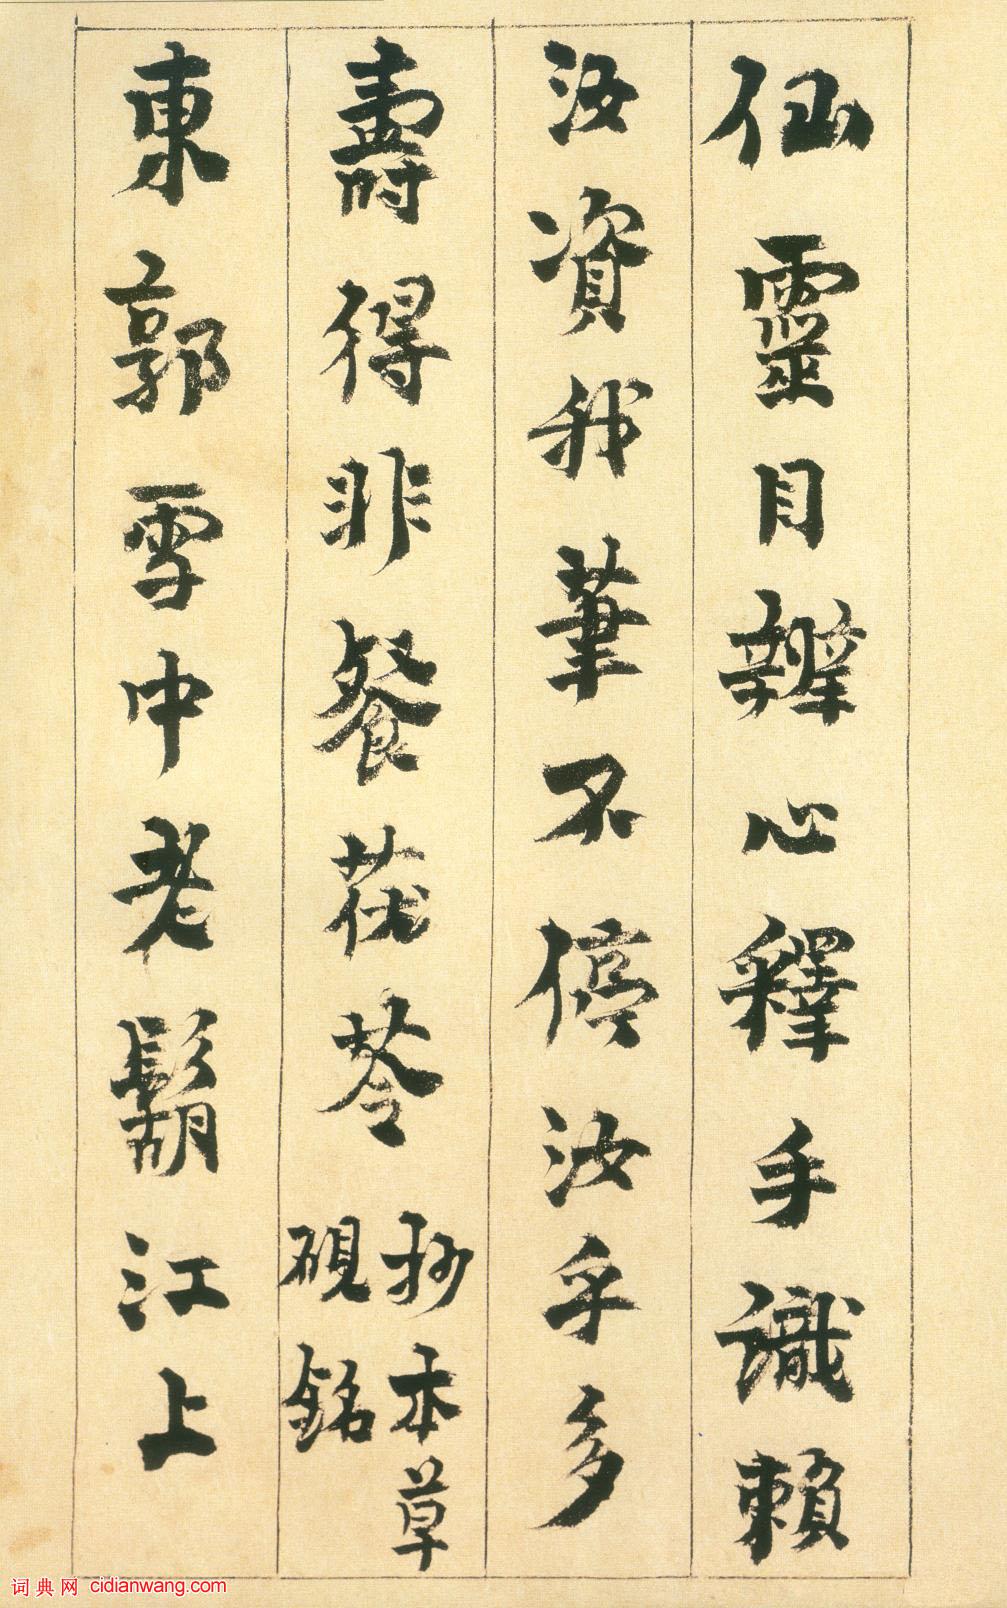 仙靈目辧心釋手識賴
汝資我筆不停汝乎多
壽得非餐茯苓抄本草
硯銘
東郭雪中老鬍江上
词典网 cidianwang.com